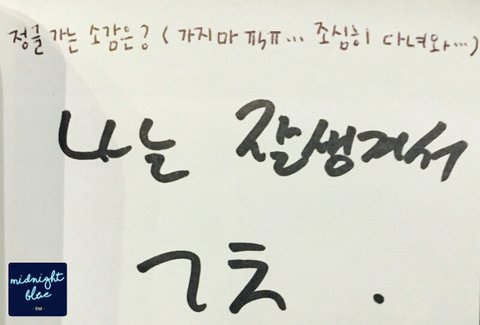 정글 가는 소감은? ( 가지마 ㅠㅠㅠ... 조심히 다녀와...)
나는 잘생겨서
ㄱㅊ .
midnight
blue
- RM -